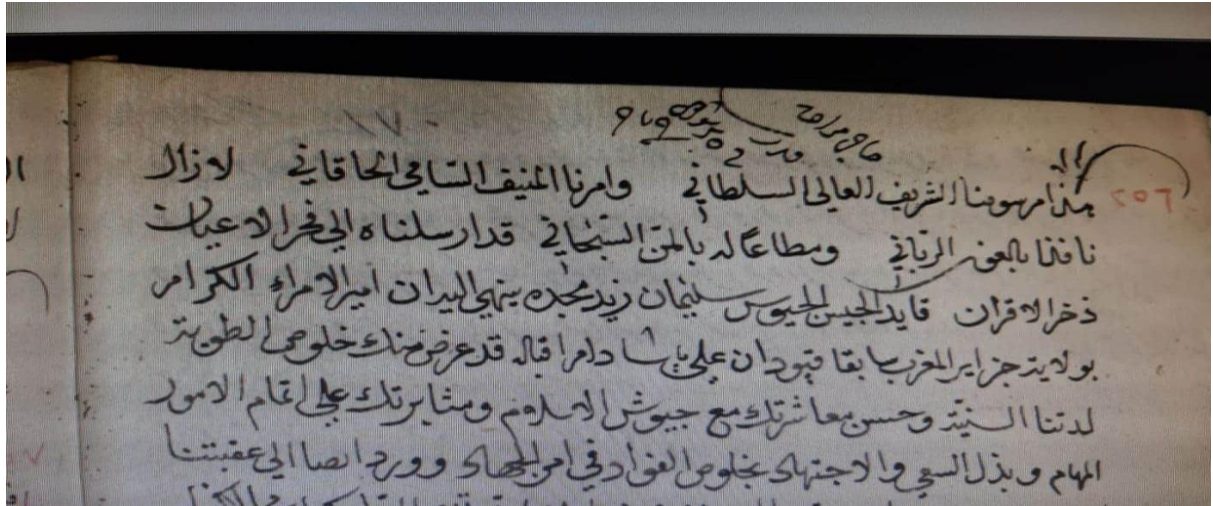 هذا مرسومنا الشريف العالي السلطاني وامرنا المنيف السامي الخاقاني لازال
نافذا بالعون الرباني ومطاعا له بالمن السبحاني قد ارسلناه الى فخر الاعيان
ذخر الاقران قايد الجيس الجيوس سليمان زيد مجده ينهي اليه ان امير الامراء الكرام
بولاية جزاير المغرب سابقا قبودان علي باشا دام اقباله قد عرض منك خلوص الطوية
لدتنا السنية وحسن معاشرتك مع جيوش الاسلام ومثابرتك على اتمام الامور
المهام وبذل السعي والاجتهاد بخلوص الفواد في امر الجهاد وورد ايضا الى عقبتنا